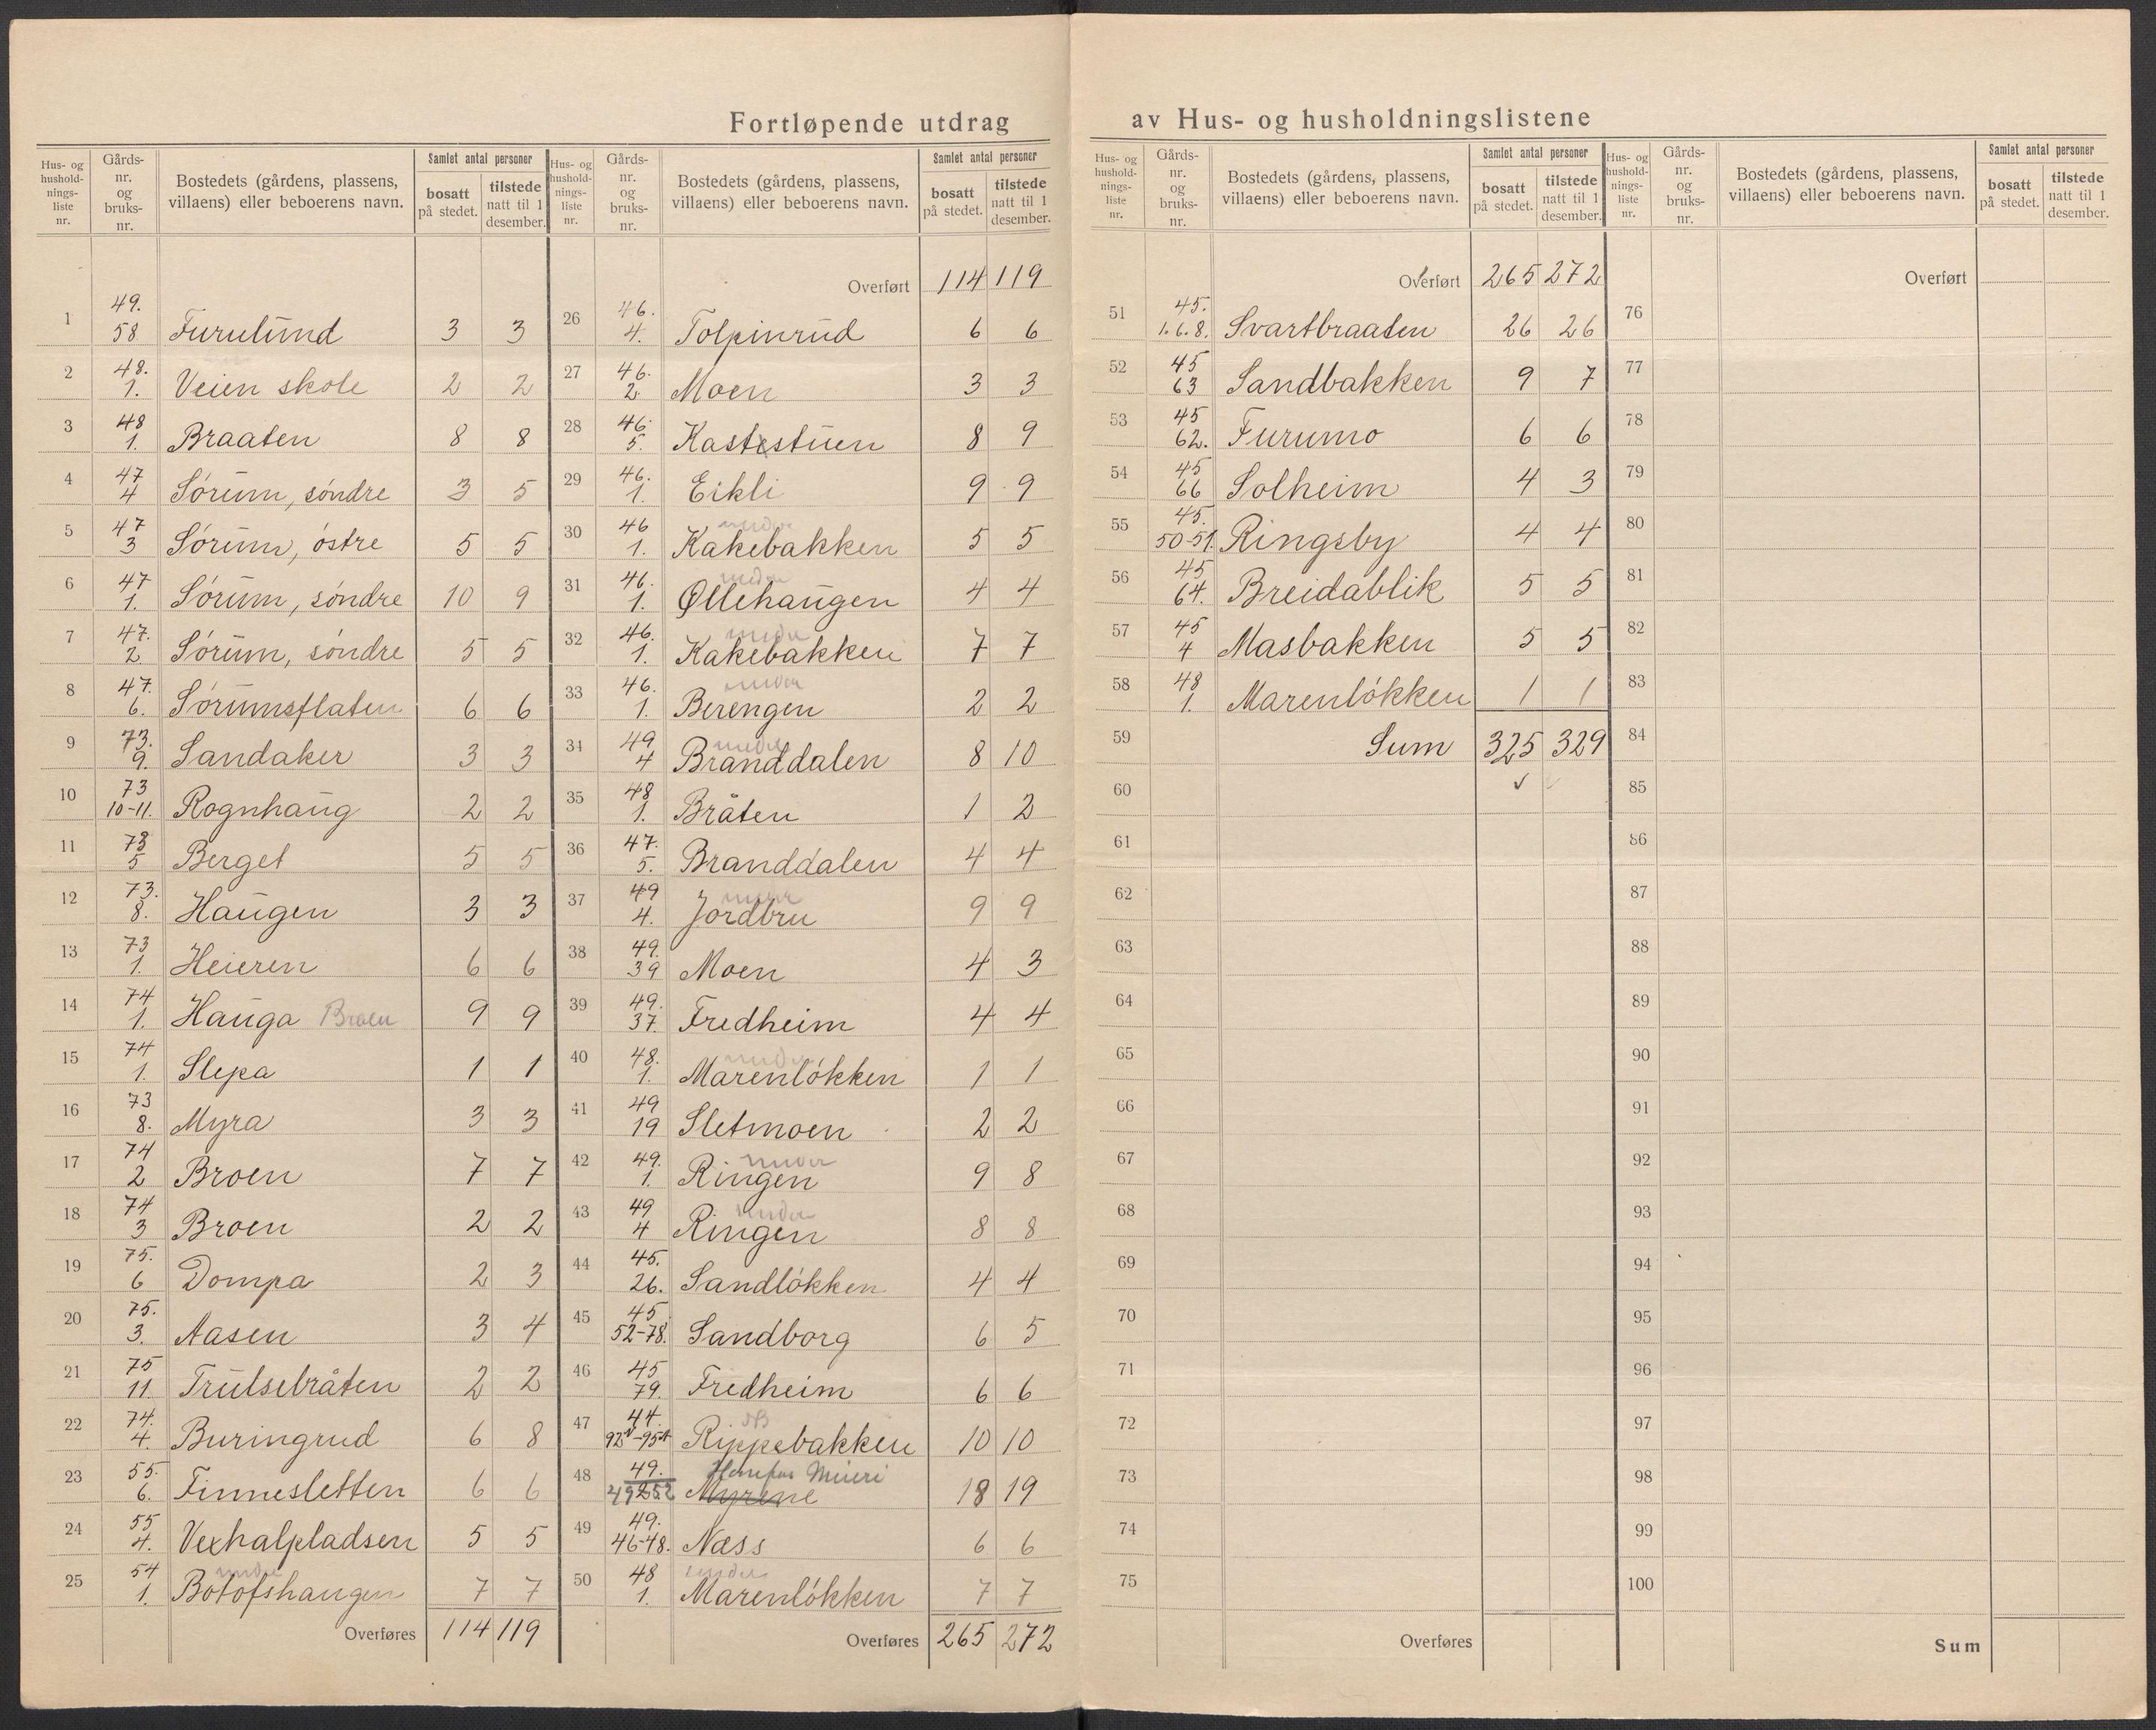 Fortløpende utdrag av Hus- og husholdningslistene
Hus- og hushold-nings-liste nr. Gårds-nr. og bruks-nr. Bostedets (gårdens, plassens, villaens) eller beboerens navn. Samlet antal personer bosatt på stedet. tilstede natt til 1 desember.
1 49. 58 Furulund 3 3
2 48. 1. Veien skole 2 2
3 48 1. Braaten 8 8
4 47 4 Sörum, söndre 3 5
5 47 3 Sörum, östre 5 5
6 47 1. Sörum, söndre 10 9
7 47. 2. Sörum, söndre 5 5
8 47. 6. Sörumsflaten 6 6
9 73. 9. Sandaker 3 3
10 73 10-11. Rognhaug 2 2
11 73 5 Berget 5 5
12 73. 8. Haugen 3 3
13 73 1. Heieren 6 6
14 74 1. Hauga Broen 9 9
15 74 1. Slepa 1 1
16 73 8. Myra 3 3
17 74 2 Broen 7 7
18 74 3 Broen 2 2
19 75. 6 Dompa 2 3
20 75. 3. Aasen 3 4
21 75 11. Trulsebråten 2 2
22 74. 4. Buringrud 6 8
23 55. 6. Finnesletten 6 6
24 55 4. Vexhalpladsen 5 5
25 54 1. under Botofshaugen 7 7
Overføres 114 119
Hus- og hushold-nings-liste nr. Gårds-nr. og bruks-nr. Bostedets (gårdens, plassens, villaens) eller beboerens navn. Samlet antal personer bosatt på stedet. tilstede natt til 1 desember.
Overført 114 119
26 46. 4. Tolpinrud 6 6
27 46. 2. Moen 3 3
28 46. 5. Kastestuen 8 9
29 46. 1. Eikli 9 9
30 46 1. under Kakebakken 5 5
31 46. 1. under Øllehaugen 4 4
32 46. 1. under Kakebakken 7 7
33 46. 1. under Berengen 2 2
34 49 4 under Branddalen 8 10
35 48 1. Bråten 1 2
36 47. 5. Branddalen 4 4
37 49 4. under Jordbru 9 9
38 49. 39 Moen 4 3
39 49. 37. Fredheim 4 4
40 48. 1. under Marenlökken 1 1
41 49 19 Sletmoen 2 2
42 49. 1. under Ringen 9 8
43 49 4 under Ringen 8 8
44 45. 26. Sandlökken 4 4
45 45. 52-78. Sandborg 6 5
46 45 79. Fredheim 6 6
47 44. Rippebakken 10 10
48 49. Hønefos Mieri Myrene 18 19
49 49. 46-48. Næss 6 6
50 48 1. under Marenlökken 7 7
Overføres 265 272
Hus- og hushold-nings-liste nr. Gårds-nr. og bruks-nr. Bostedets (gårdens, plassens, villaens) eller beboerens navn. Samlet antal personer bosatt på stedet. tilstede natt til 1 desember.
Overført 265 272
51 45. 1.6.8. Svartbraaten 26 26
52 45 63 Sandbakken 9 7
53 45 62. Furumo 6 6
54 45 66 Solheim 4 3
55 45. 50-51. Ringsby 4 4
56 45 64. Breidablik 5 5
57 45 4 Masbakken 5 5
58 48 1. Marenlökken 1 1
59 Sum 325 329
60
61
62
63
64
65
66
67
68
69
70
71
72
73
74
75
Overføres
Hus- og hushold-nings-liste nr. Gårds-nr. og bruks-nr. Bostedets (gårdens, plassens, villaens) eller beboerens navn. Samlet antal personer bosatt på stedet. tilstede natt til 1 desember.
Overført
76
77
78
79
80
81
82
83
84
85
86
87
88
89
90
91
92
93
94
95
96
97
98
99
100
Sum